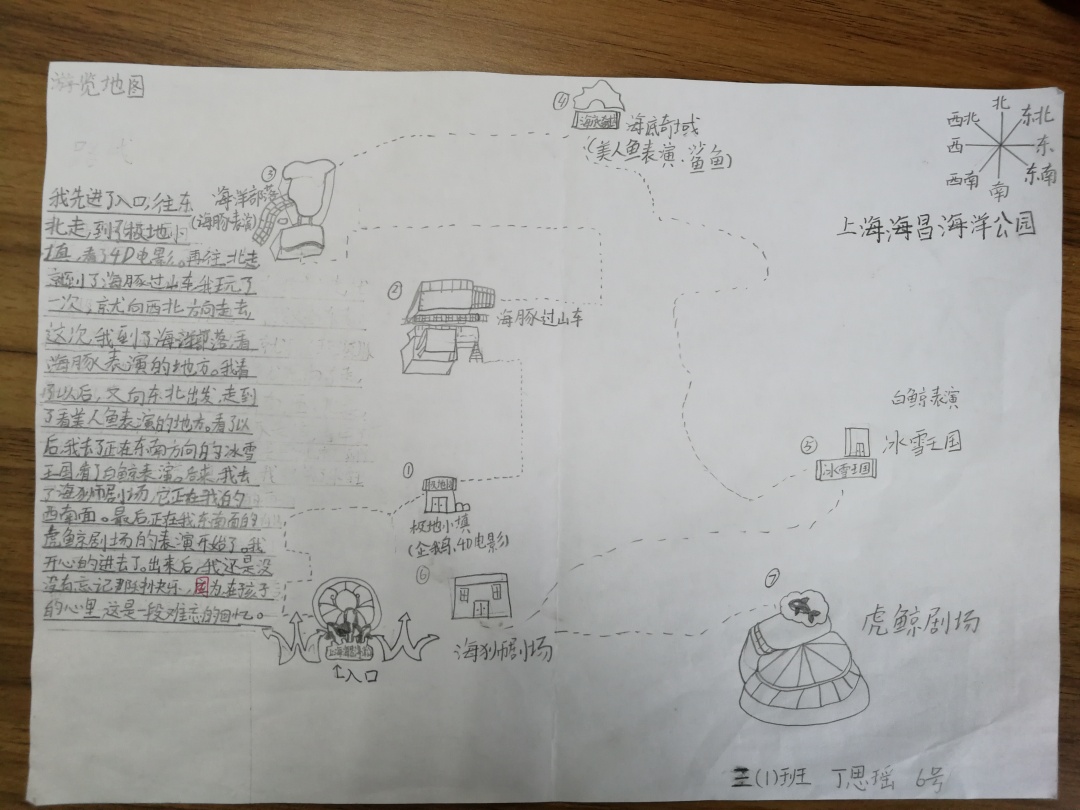 游览地图
我先进了入口,往东
北走,到了极地小
镇,看了4D电影。再往北走
就到了海豚过山车,我玩了
一次,就向西北方向走去,
这次,我到了海洋部落,看
海豚表演的地方。我看
以后,又向东北出发,走到
了看美人鱼表演的地方。看了以
后,我去了正在东南方向的冰雪
王国,看了白鲸表演。后来,我去
了海狮剧场,它正在我的
西南面。最后,正在我东南面的
虎鲸剧场的表演开始了。我
开心的进去了。出来后,我还是没
没有忘记那份快乐,因为,在孩子
的心里,这是一段难忘的回忆。
③
海洋部落
(海豚表演)
④
海底奇域
海底奇域
(美人鱼表演、鲨鱼)
北
西北 东北
西 东
西南 东南
南
上海海昌海洋公园
②
海豚过山车
白鲸表演
⑤
冰雪王国
冰雪王国
①
极地小镇
(企鹅、4D电影)
⑥
海狮剧场
⑦
虎鲸剧场
↑入口
三(1)班 丁思瑶 6号